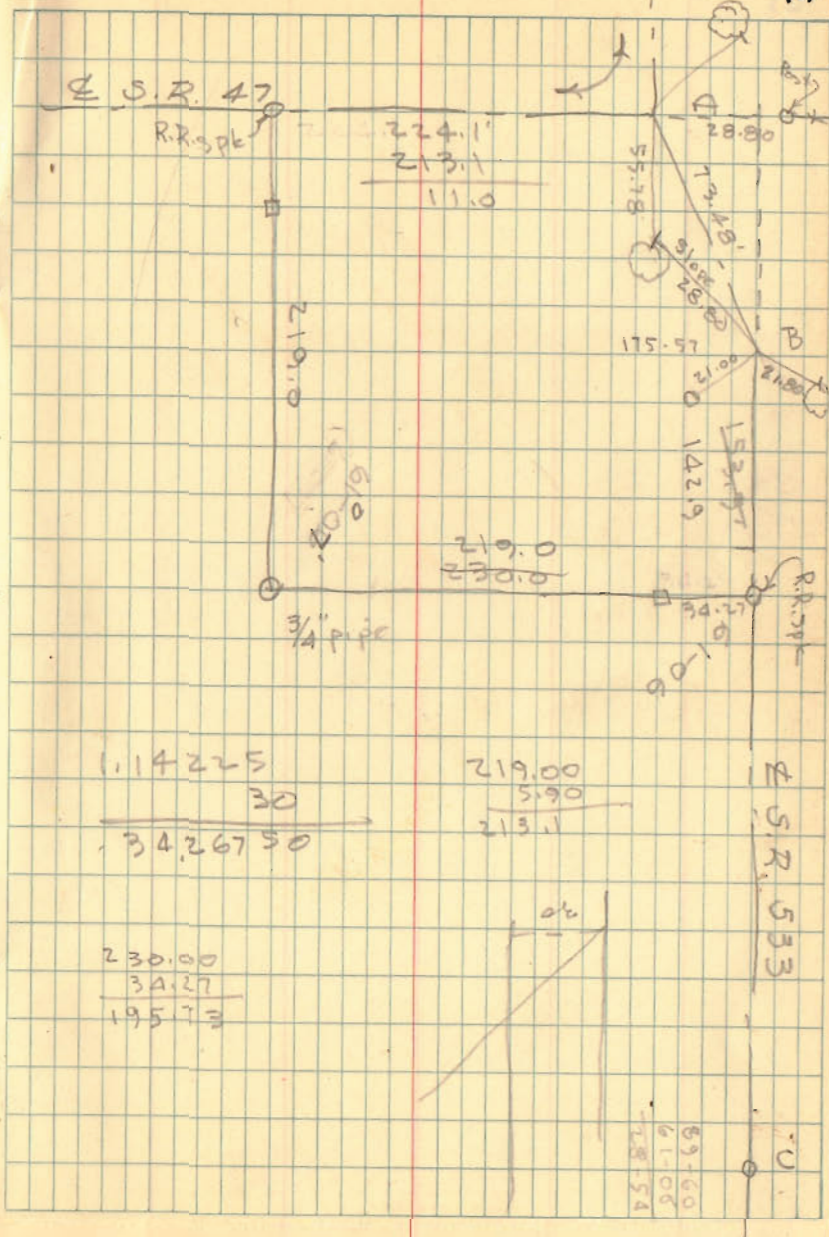 ℄ S.R. 47
R.R. spk
224.1'
213.1
11.0
28.80
Post
55.78
73.48'
slope
28.80
B
175.57
21.00
21.80
219.0
153.97
142.9
219.0
230.0
3/4" pipe
34.27
R.R. spk
61-06
1.14225
30
34.26750
219.00
5.90
213.1
℄ S.R. 533
230.00
34.27
195.73
30
89-60
61-06
28-54
C